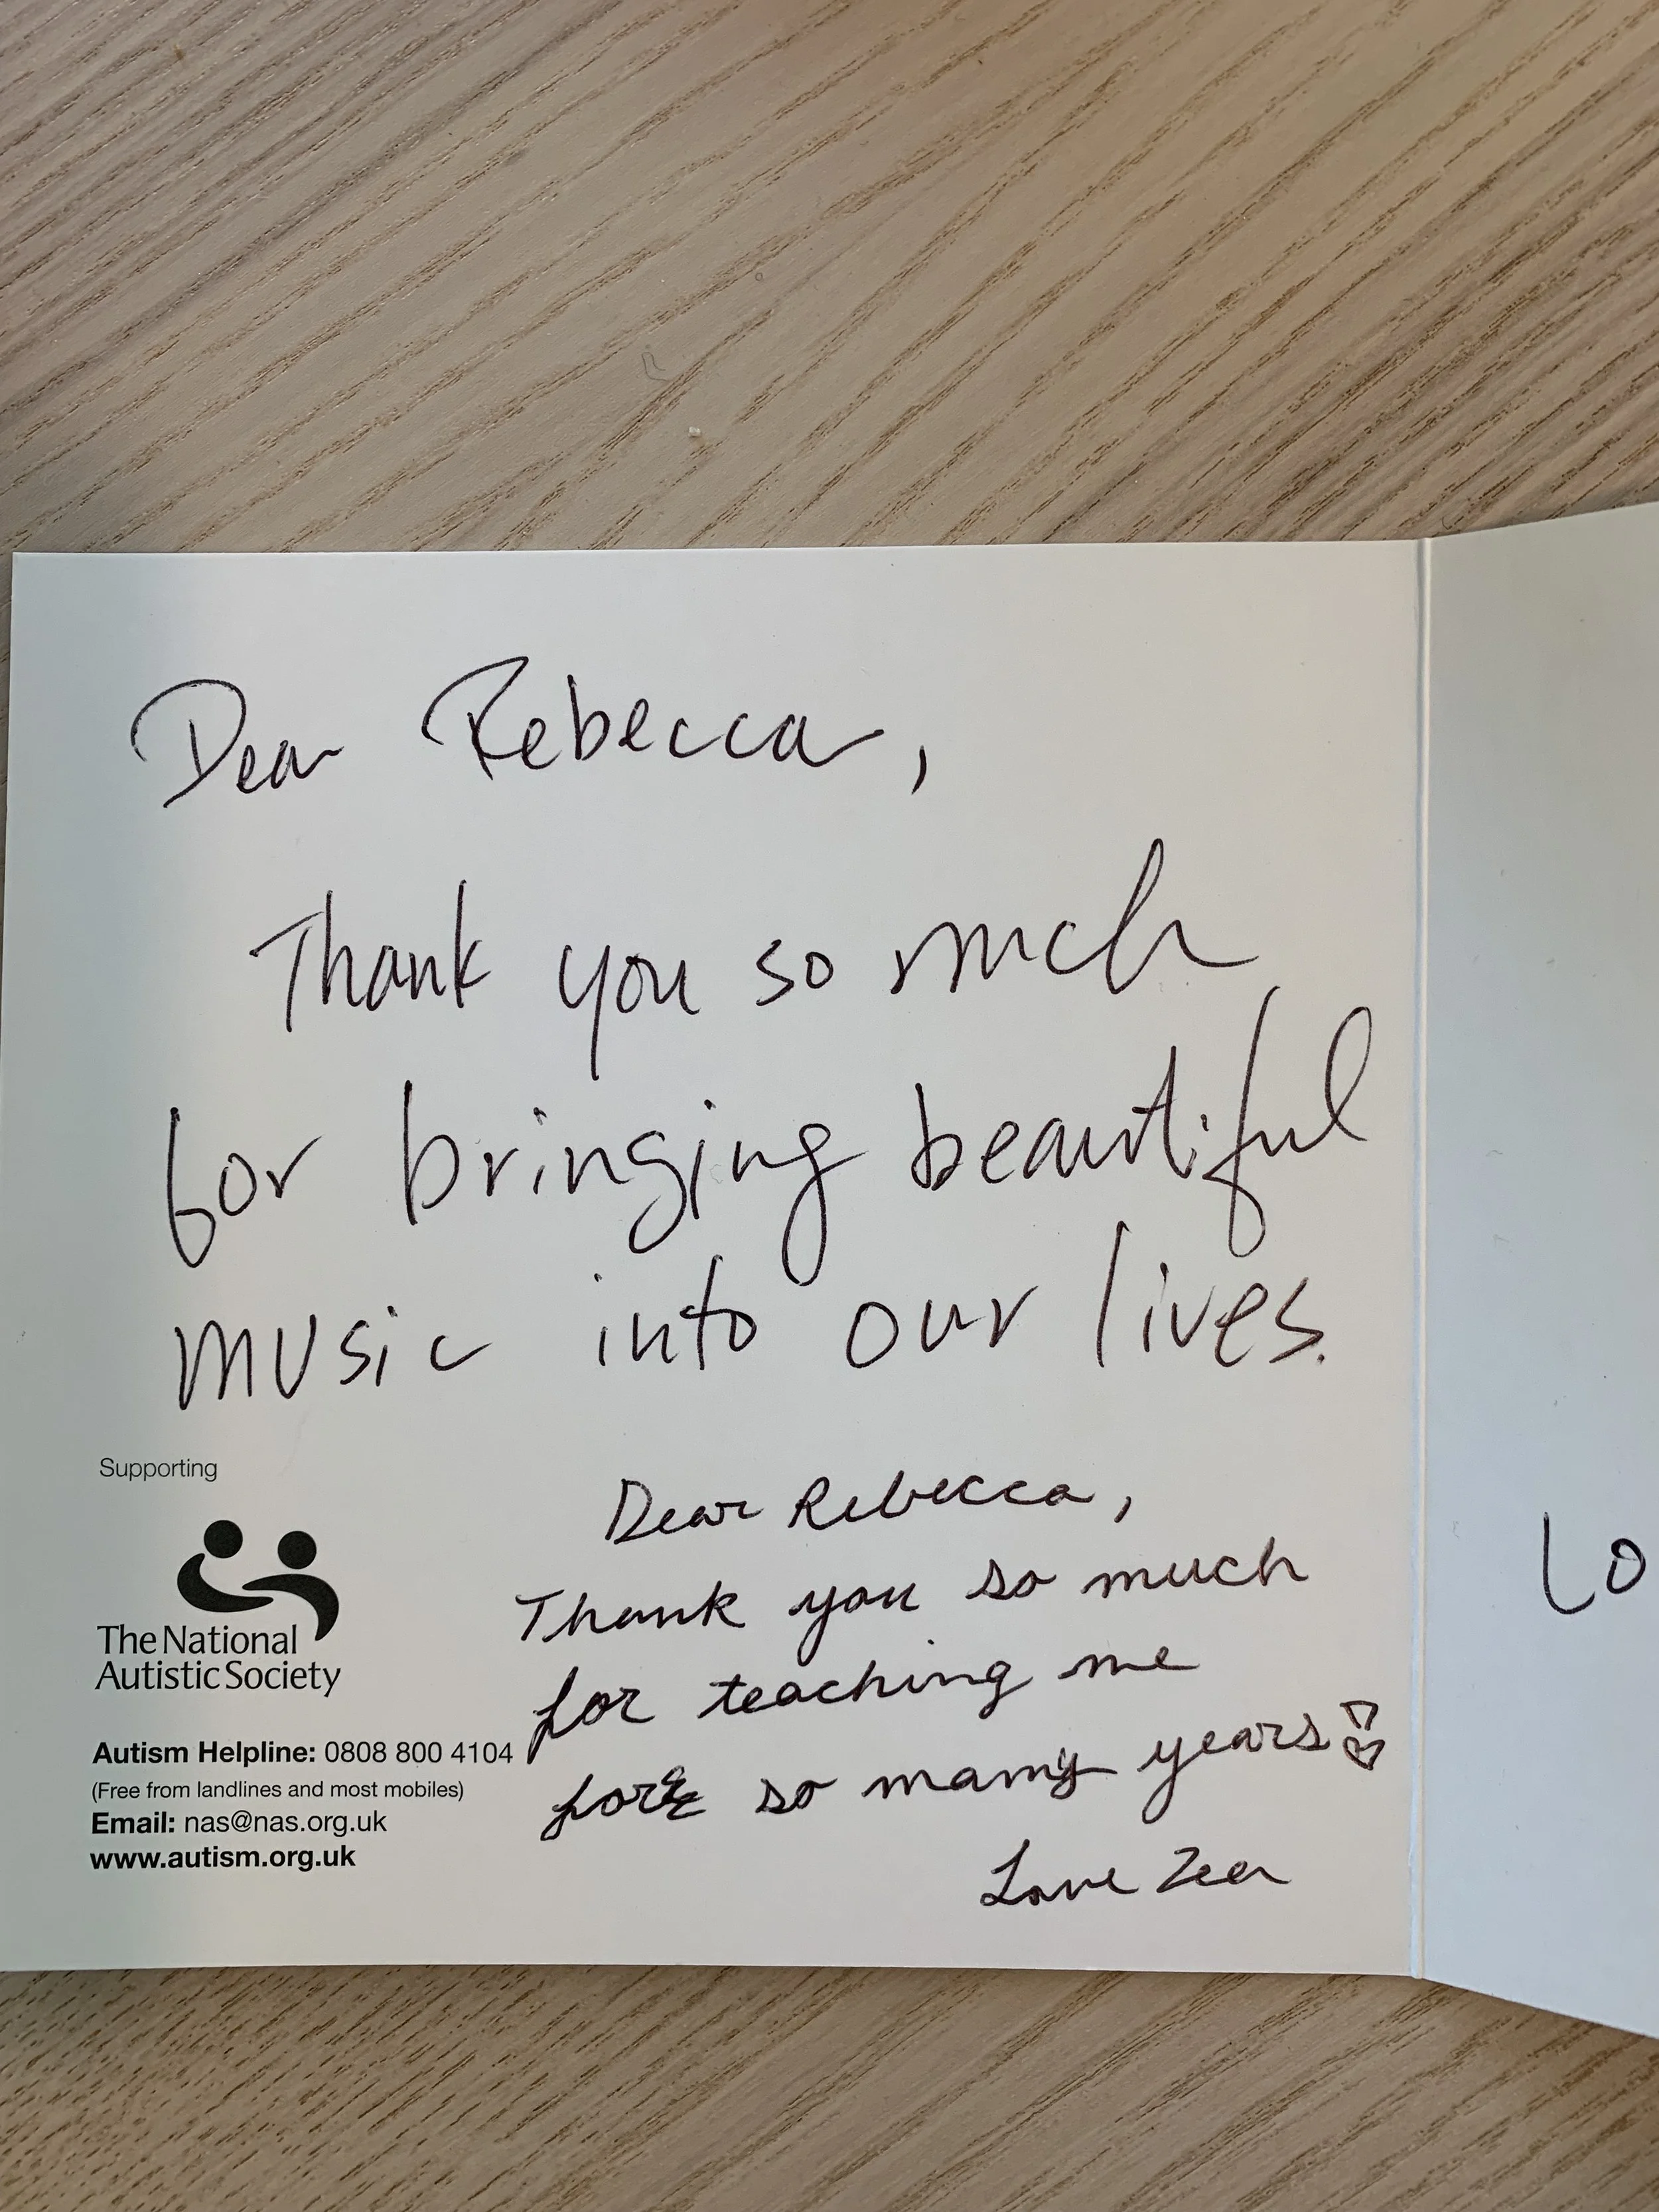 Dear Rebecca,
Thank you so much
for bringing beautiful
music into our lives.
Supporting
The National
Autistic Society
Autism Helpline: 0808 800 4104
(Free from landlines and most mobiles)
Email: nas@nas.org.uk
www.autism.org.uk
Dear Rebecca,
Thank you so much
for teaching me
for so many years
Love
Lo